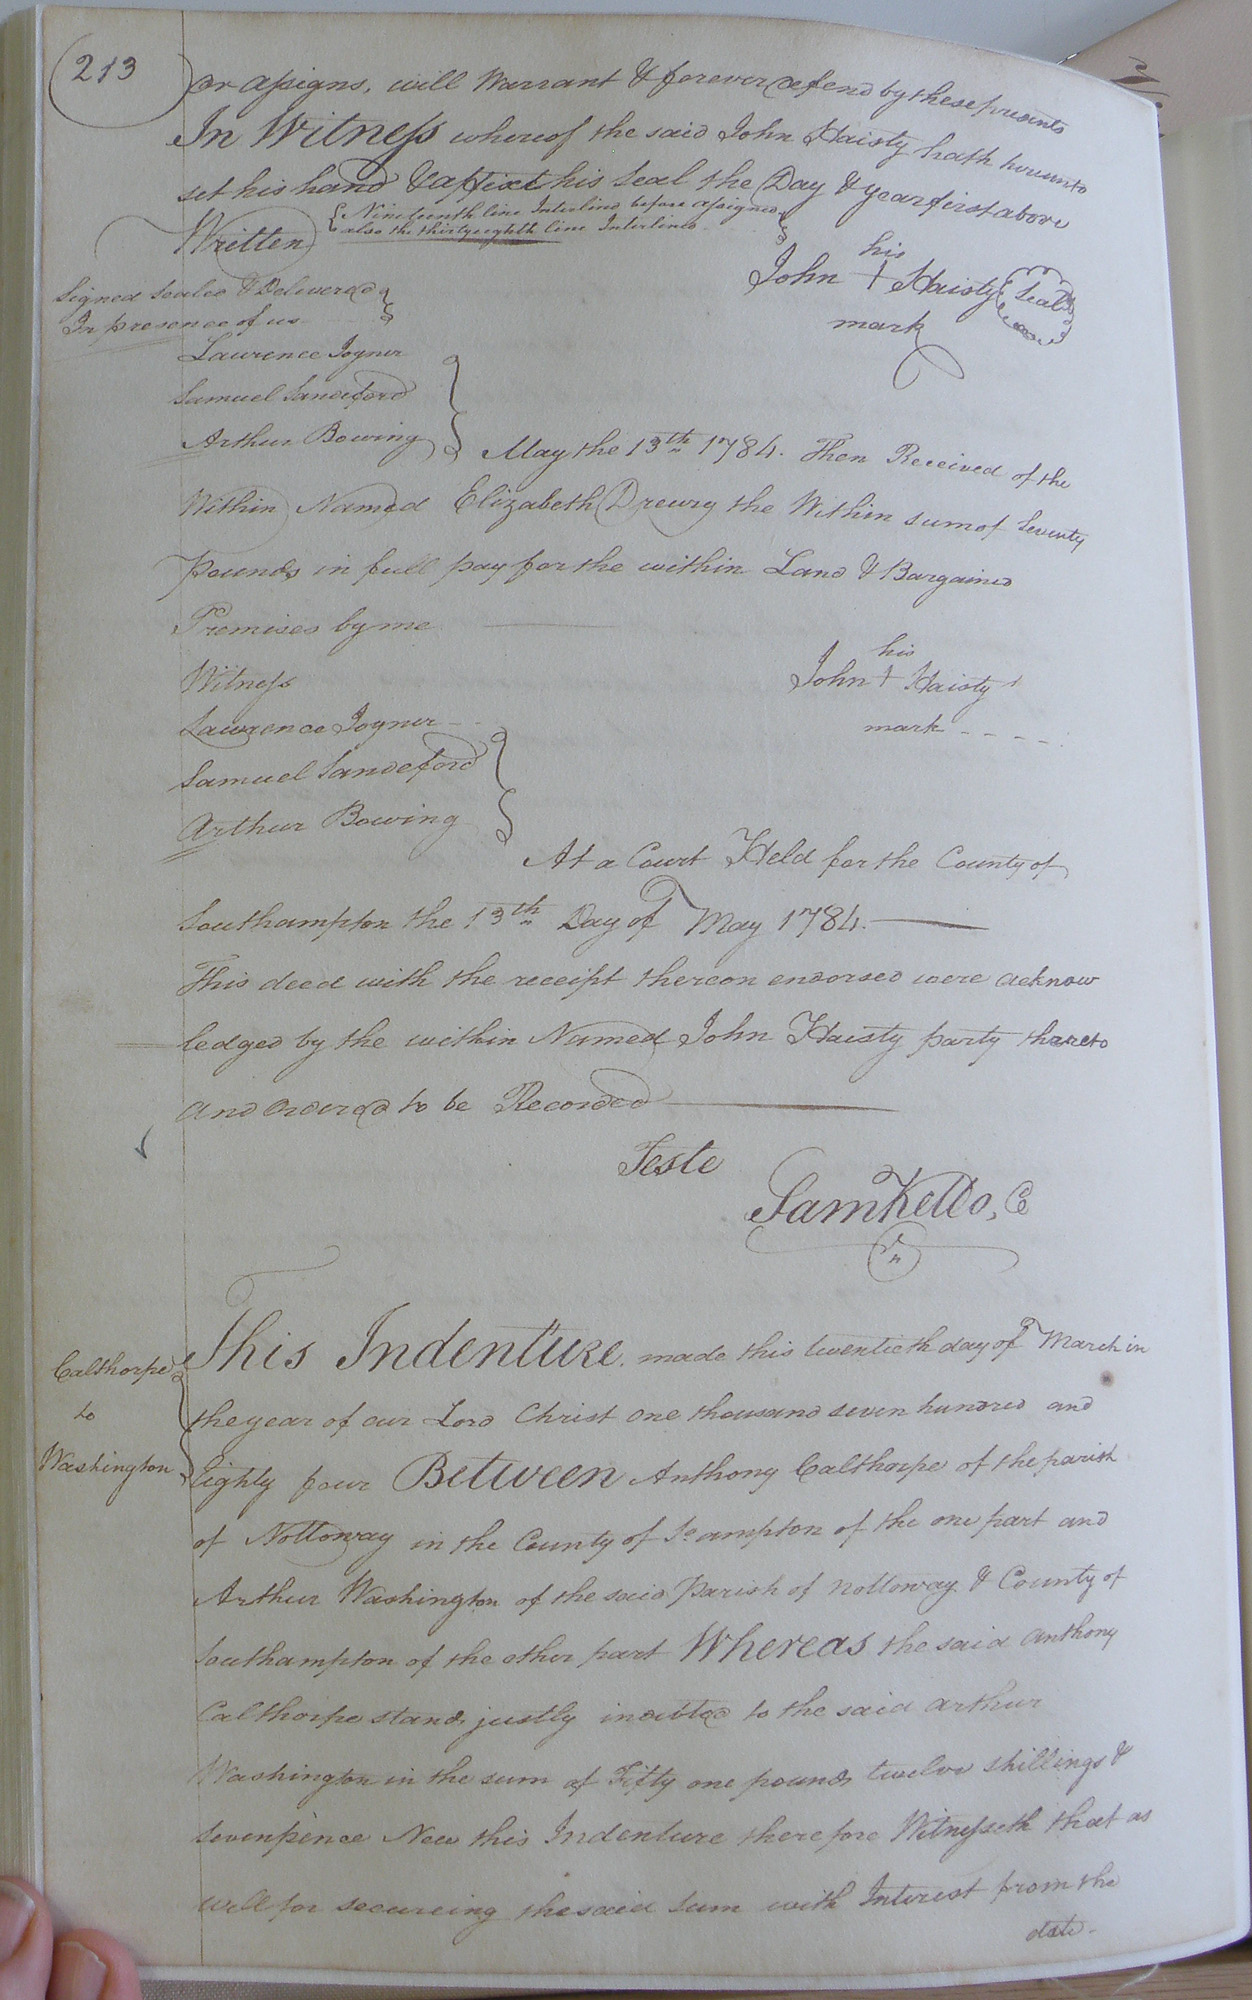 213
or assigns, will Warrant & forever defend by these presents
In Witness whereof the said John Haisty hath hereunto
set his hand & affixt his Seal the Day & year first above
Written
Nineteenth line Interlind before assigned
also the thirty eighth line Interlined
his
John + Haisty Seal
mark
Signed Sealed & Delivered
In presence of us
Laurence Joyner
Samuel Sandeford
Arthur Bowing
May the 13th 1784. Then Received of the
Within Named Elizabeth Drewry the Within sum of Seventy
Pounds in full pay for the within Land & Bargained
Premises by me
his
John + Haisty
mark
Witness
Lawrence Joyner
Samuel Sandeford
Arthur Bowing
At a Court Held for the County of
Southampton the 13th Day of May 1784.
This deed with the receipt thereon endorsed were acknow
ledged by the within Named John Haisty party thereto
and Ordered to be Recorded
Teste
Sam Kello, C
Calthorpe
to
Washington
This Indenture made this twentieth day of March in
the year of our Lord Christ one thousand seven hundred and
Eighty four Between Anthony Calthorpe of the parish
of Nottoway in the County of So ampton of the one part and
Arthur Washington of the said Parish of Nottoway & County of
Southampton of the other part Whereas the said Anthony
Calthorpe stands justly indebted to the said Arthur
Washington in the sum of Fifty one pounds twelve shillings &
sevenpence Now this Indenture therefore Witnesseth that as
well for secureing the said Sum with Interest from the
date